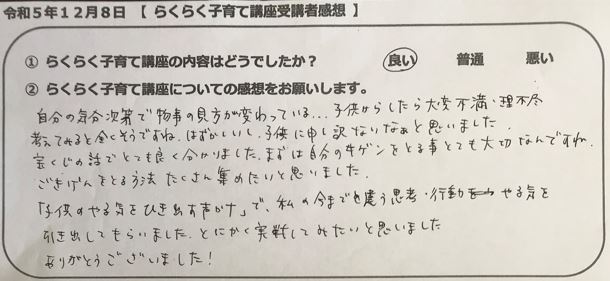 令和5年12月8日 【 らくらく子育て講座受講者感想 】
① らくらく子育て講座の内容はどうでしたか？ 良い 普通 悪い
② らくらく子育て講座についての感想をお願いします。
自分の気分次第で物事の見方が変わっている...子供からしたら大変不満・理不尽
考えてみると全くそうですね。はずかしいし、子供に申し訳ないなぁと思いました。
宝くじの話でとても良く分かりました。まずは自分のキゲンをとる事とても大切なんですね。
ごきげんをとる方法 たくさん集めたいと思いました。
「子供のやる気をひき出す声かけ」で、私の今までと違う思考・行動 やる気を
引き出してもらいました。とにかく実戦してみたいと思いました
ありがとうございました！